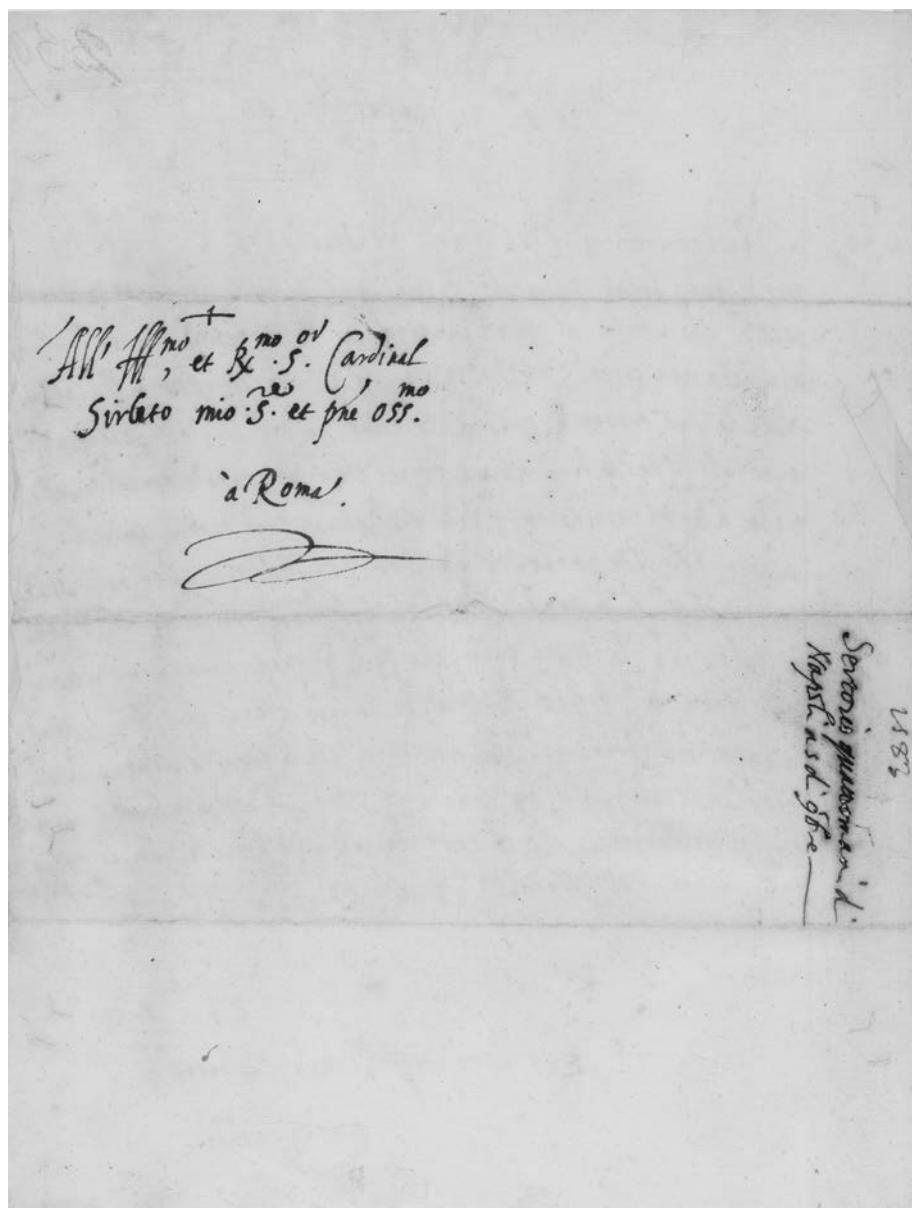 All' Ill^mo, et R^mo. S.^or Cardinal
Sirleto mio .S.^re et pne oss.^mo
à Roma.
1583
Sertorio quattromani di
Napoli a s d' 9bre